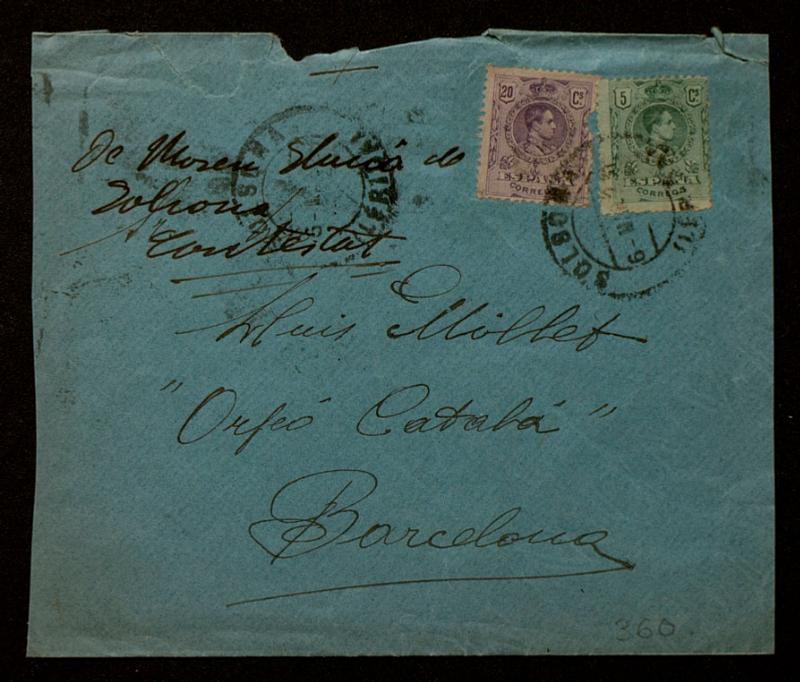 20 Cs
5 Cs
CORREOS
CORREOS
SOLSONA
De Mossen
Contestat
Lluis Millet
"Orfeó Catalá"
Barcelona
360